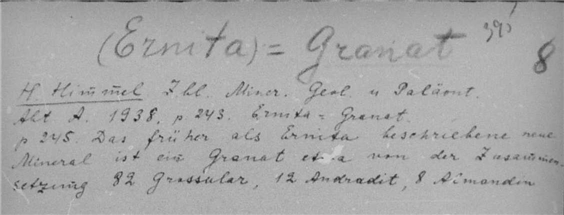 (Ernita) = Granat
395
8
H. Himmel Zbl. Miner. Geol. u Paläont.
Abt A. 1938, p 243. Ernita = Granat.
p 245. Das früher als Ernita beschriebene neue
Mineral ist ein Granat etwa von der Zusammen-
setzung 82 Grossular, 12 Andradit, 8 Almandin